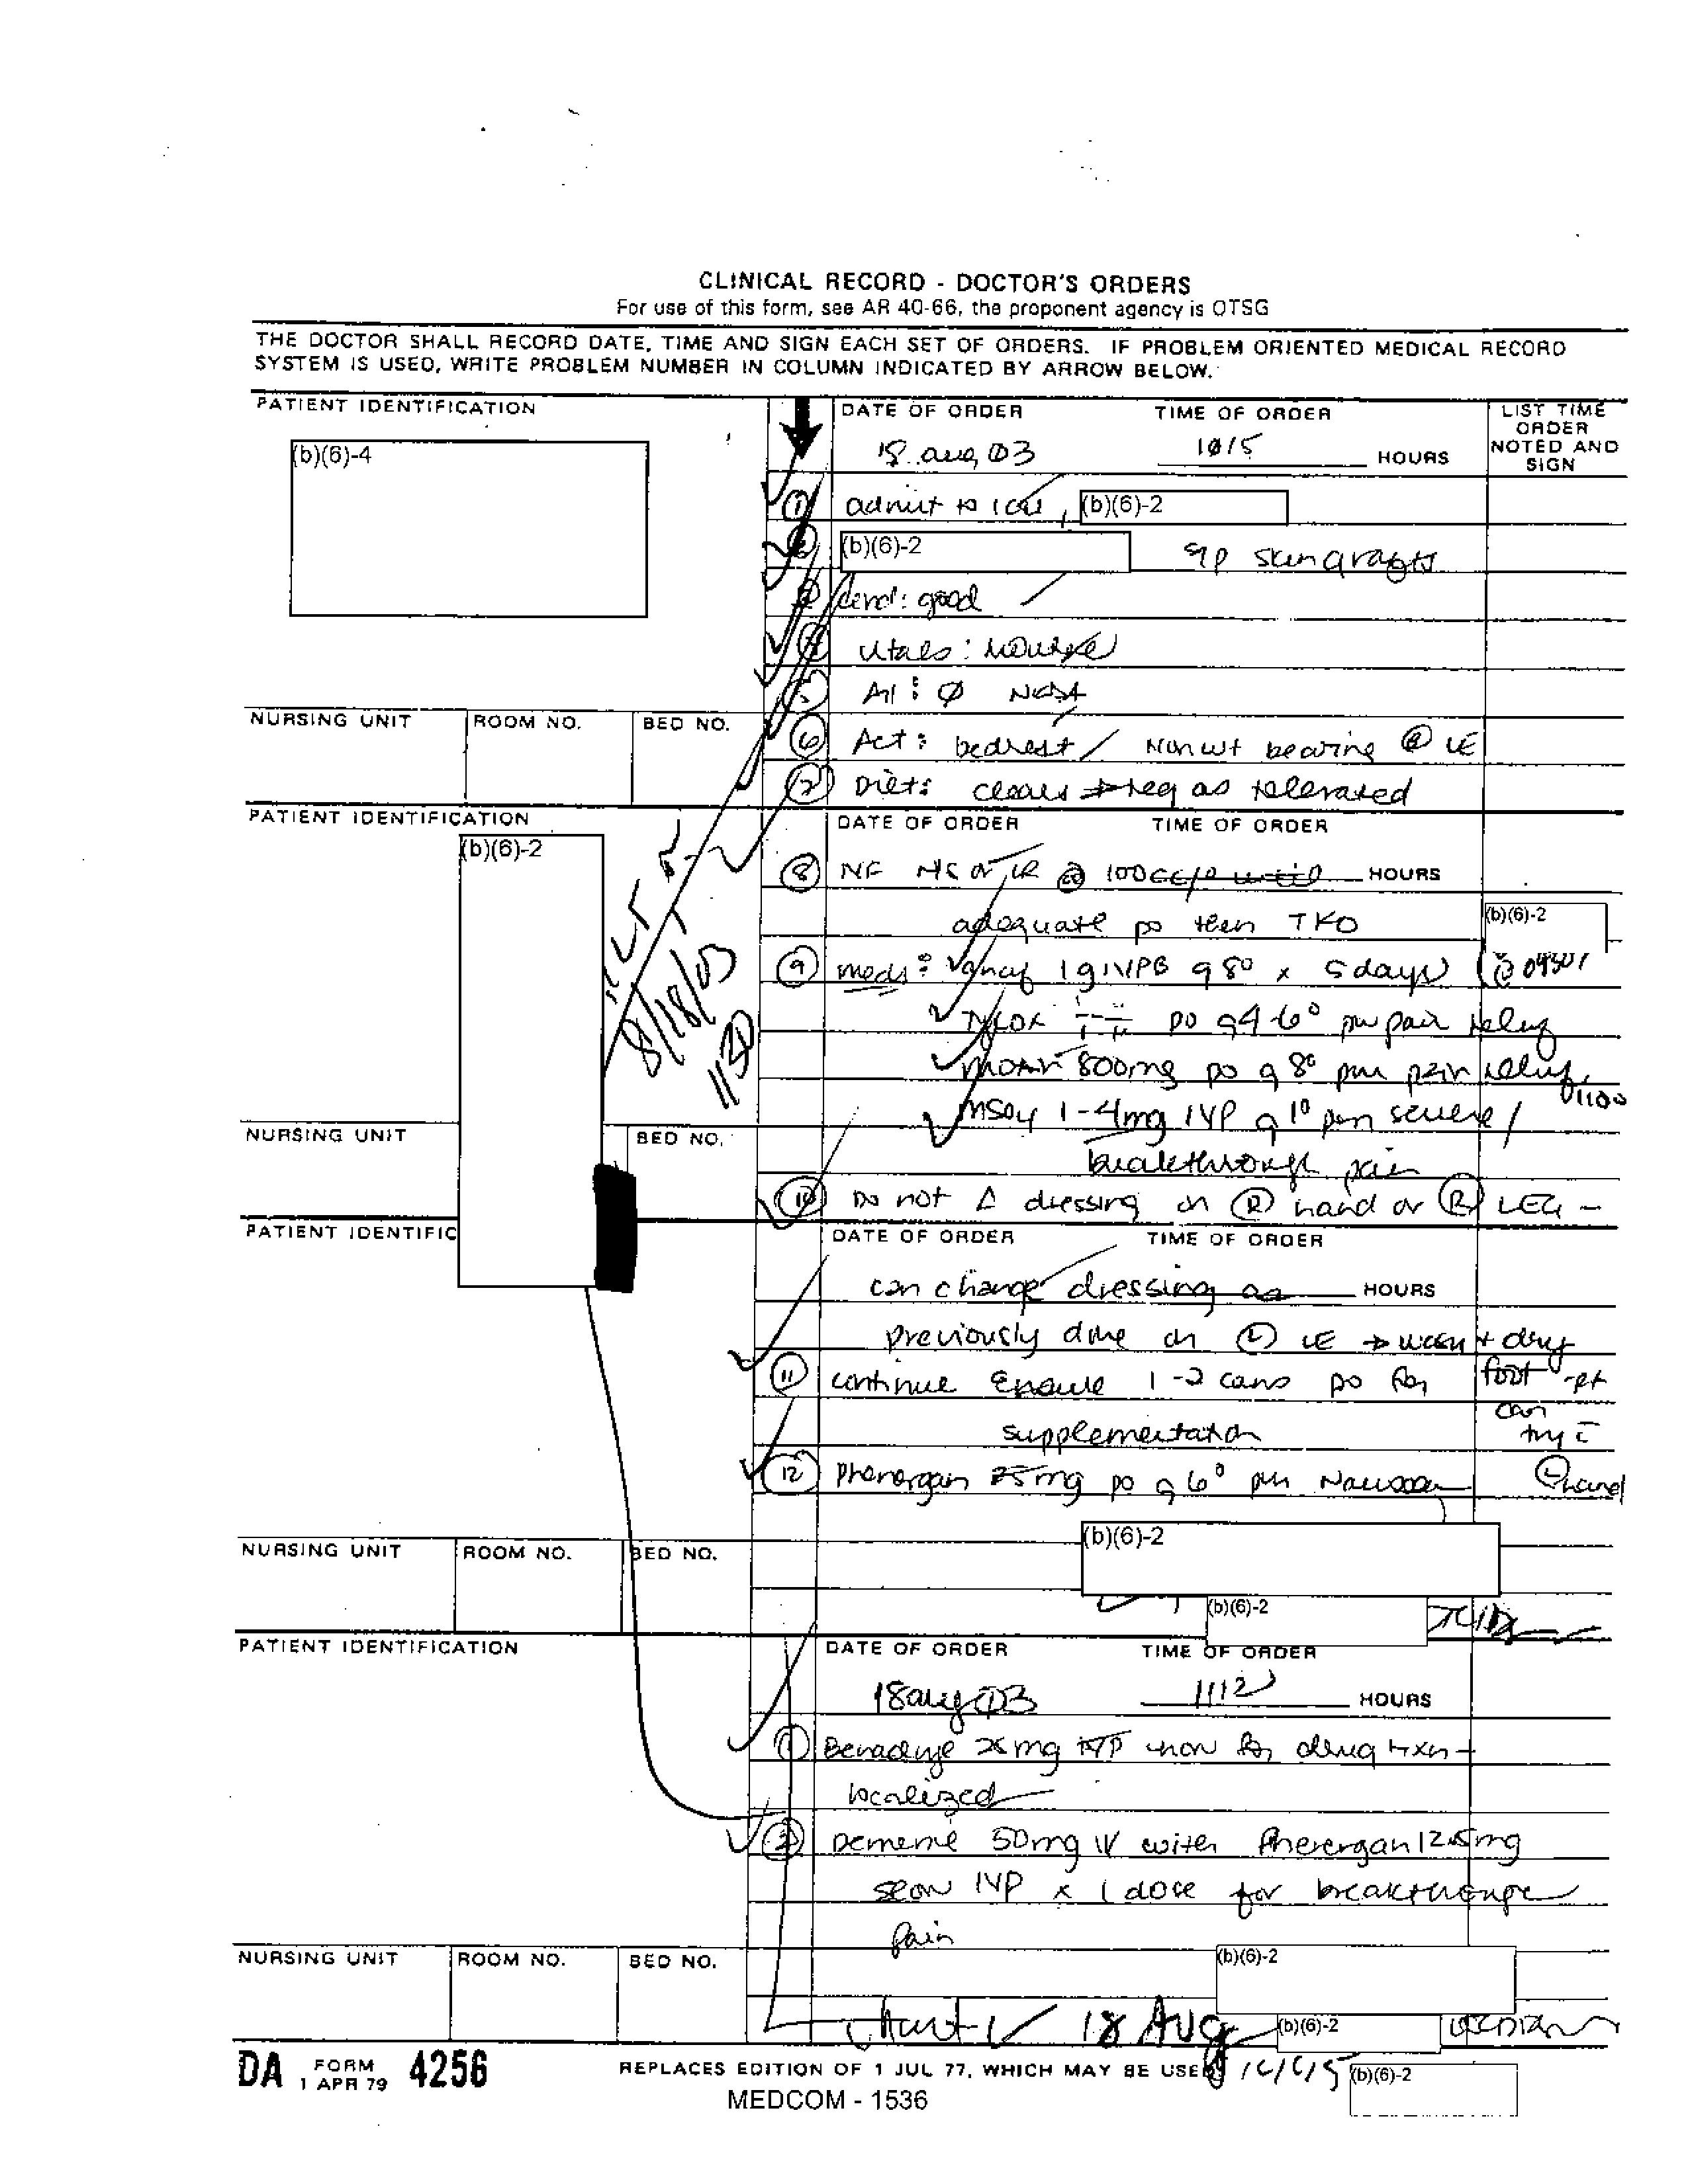 CLINICAL RECORD - DOCTOR'S ORDERS
For use of this form, see AR 40-66, the proponent agency is OTSG
THE DOCTOR SHALL RECORD DATE, TIME AND SIGN EACH SET OF ORDERS. IF PROBLEM ORIENTED MEDICAL RECORD
SYSTEM IS USED, WRITE PROBLEM NUMBER IN COLUMN INDICATED BY ARROW BELOW.
PATIENT IDENTIFICATION
(b)(6)-4
DATE OF ORDER TIME OF ORDER
LIST TIME ORDER NOTED AND SIGN
18 aug 03 1015 HOURS
1 admit to ICU, (b)(6)-2
(b)(6)-2 s/p skin grafts
cond: good
4 Vitals: routine
5 All: Ø NKDA
6 Act: bedrest / Non wt bearing LE
7 Diet: clears → reg as tolerated
NURSING UNIT ROOM NO. BED NO.
PATIENT IDENTIFICATION
(b)(6)-2
8/18/03
1130
DATE OF ORDER TIME OF ORDER
8 NS or LR @ 100cc/° until HOURS
adequate po then TKO
(b)(6)-2
9 meds: Ancef 1g IVPB q 8° x 5 days
po q 4-6° prn pain relief
Motrin 800mg po q 8° prn pain relief
1100
MSO4 1-4mg IVP q 1° prn severe /
breakthrough pain
10 Do not Δ dressing on R hand or R LEG -
NURSING UNIT BED NO.
PATIENT IDENTIFIC
DATE OF ORDER TIME OF ORDER
can change dressing as HOURS
previously done on L LE → wash + dry
foot - pt
can
try c̄
L hand
11 continue Ensure 1-2 cans po for
supplementation
12 Phenergan 25mg po q 6° prn Nausea
(b)(6)-2
(b)(6)-2
NURSING UNIT ROOM NO. BED NO.
PATIENT IDENTIFICATION
DATE OF ORDER TIME OF ORDER
18 aug 03 1112 HOURS
1 Benadryl mg IVP now for drug rxn -
localized
2 Demerol 50mg IV with Phenergan 12.5mg
slow IVP x 1 dose for breakthrough
pain
(b)(6)-2
NURSING UNIT ROOM NO. BED NO.
chart ✓ 18 Aug (b)(6)-2
DA FORM 4256
1 APR 79
REPLACES EDITION OF 1 JUL 77, WHICH MAY BE USED
(b)(6)-2
MEDCOM - 1536